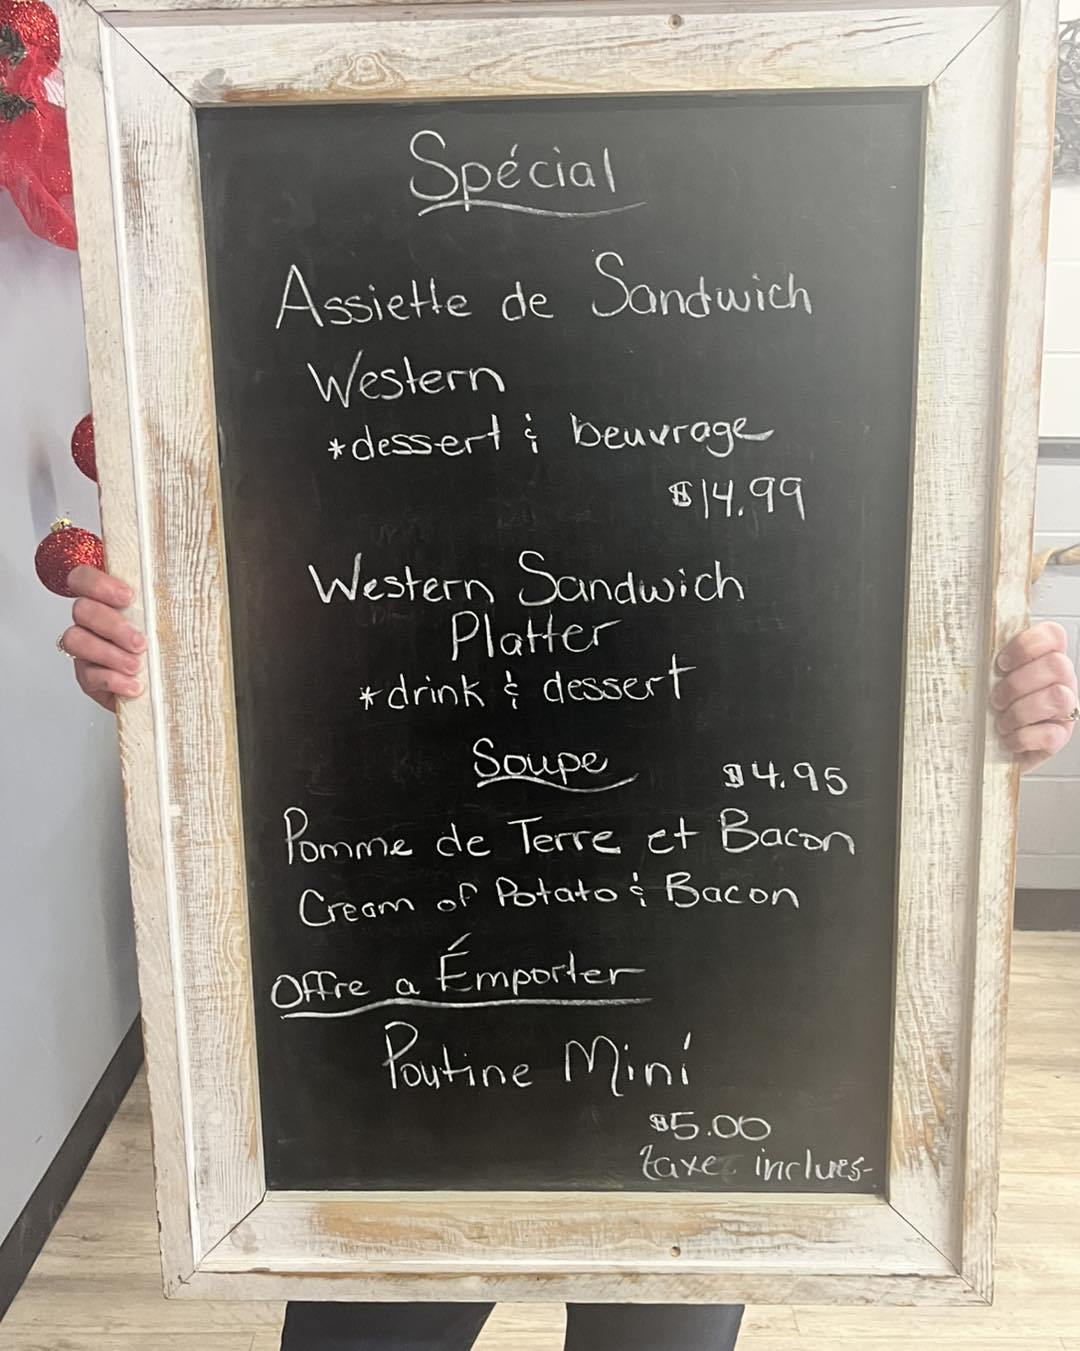 Spécial
Assiette de Sandwich
Western
*dessert & beuvrage
$14.99
Western Sandwich
Platter
*drink & dessert
Soupe $4.95
Pomme de Terre et Bacon
Cream of Potato & Bacon
Offre a Émporter
Poutine Mini
$5.00
taxe inclues